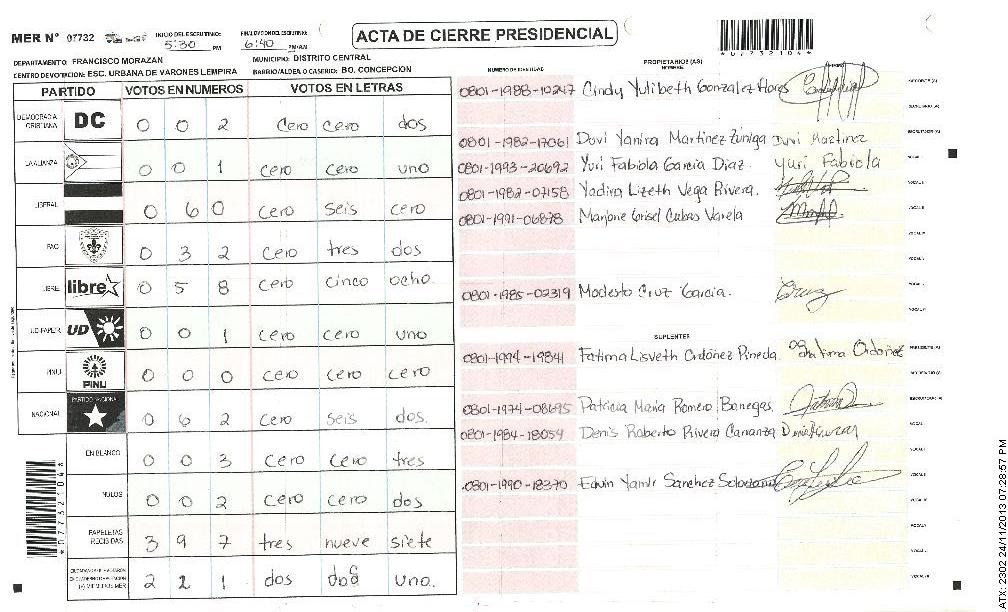 MER N° 07732
INICIO DEL ESCRUTINIO:
5:30 PM
FINALIZACION DEL ESCRUTINIO:
6:40 PM/AM
ACTA DE CIERRE PRESIDENCIAL
*0773210 4*
DEPARTAMENTO: FRANCISCO MORAZAN
MUNICIPIO: DISTRITO CENTRAL
CENTRO DE VOTACION: ESC. URBANA DE VARONES LEMPIRA
BARRIO/ALDEA O CASERIO: BO. CONCEPCION
PARTIDO VOTOS EN NUMEROS VOTOS EN LETRAS
DEMOCRACIA CRISTIANA DC 0 0 2 cero cero dos
LA ALIANZA 0 0 1 cero cero uno
LIBERAL 0 6 0 cero seis cero
PAC 0 3 2 cero tres dos
LIBRE libre 0 5 8 cero cinco ocho.
UD-FAPER UD 0 0 1 cero cero uno
PINU PINU 0 0 0 cero cero cero
NACIONAL PARTIDO NACIONAL 0 6 2 cero seis dos.
EN BLANCO 0 0 3 cero cero tres
NULOS 0 0 2 cero cero dos
PAPELETAS RECIBIDAS 3 9 7 tres nueve siete
2 2 1 dos dos uno.
NUMERO DE IDENTIDAD
PROPIETARIOS (AS)
NOMBRE
0801-1988-10247 Cindy Yulibeth Gonzalez Flores
0801-1982-17061 Dovi Yanira Martinez Zuniga Dovi Martinez
0801-1993-20692 Yuri Fabiola Garcia Diaz. Yuri Fabiola
0801-1982-07158 Yadira Lizeth Vega Rivera.
0801-1991-06878 Marjorie Grisel Cubas Varela
0801-1985-02319 Modesto Cruz Garcia. Cruz
SUPLENTES
0801-1994-19841 Fatima Lisveth Ordoñez Pineda Fatima Ordoñez
0801-1974-08695 Patricia Maria Romero Banegas.
0801-1984-18054 Denis Roberto Rivera Carranza
0801-1990-18370 Edwin Yamir Sanchez
ATX: 2302 24/11/2013 07:28:57 PM